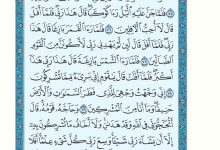 فَلَمَّا جَنَّ عَلَيْهِ ٱلَّيْلُ رَءَا كَوْكَبًا قَالَ هَٰذَا رَبِّي فَلَمَّا أَفَلَ
قَالَ لَآ أُحِبُّ ٱلْءَافِلِينَ ٧٦ فَلَمَّا رَءَا ٱلْقَمَرَ بَازِغًا قَالَ هَٰذَا رَبِّي
فَلَمَّآ أَفَلَ قَالَ لَئِن لَّمْ يَهْدِنِي رَبِّي لَأَكُونَنَّ مِنَ ٱلْقَوْمِ
ٱلضَّآلِّينَ ٧٧ فَلَمَّا رَءَا ٱلشَّمْسَ بَازِغَةً قَالَ هَٰذَا رَبِّي هَٰذَآ
أَكْبَرُ فَلَمَّآ أَفَلَتْ قَالَ يَٰقَوْمِ إِنِّي بَرِيٓءٌ مِّمَّا تُشْرِكُونَ
٧٨ إِنِّي وَجَّهْتُ وَجْهِيَ لِلَّذِي فَطَرَ ٱلسَّمَٰوَٰتِ وَٱلْأَرْضَ
حَنِيفًا وَمَآ أَنَا۠ مِنَ ٱلْمُشْرِكِينَ ٧٩ وَحَآجَّهُۥ قَوْمُهُۥ قَالَ
أَتُحَٰٓجُّوٓنِّي فِي ٱللَّهِ وَقَدْ هَدَىٰنِ وَلَآ أَخَافُ مَا تُشْرِكُونَ بِهِۦٓ
إِلَّآ أَن يَشَآءَ رَبِّي شَيْـًٔا وَسِعَ رَبِّي كُلَّ شَيْءٍ عِلْمًا أَفَلَا